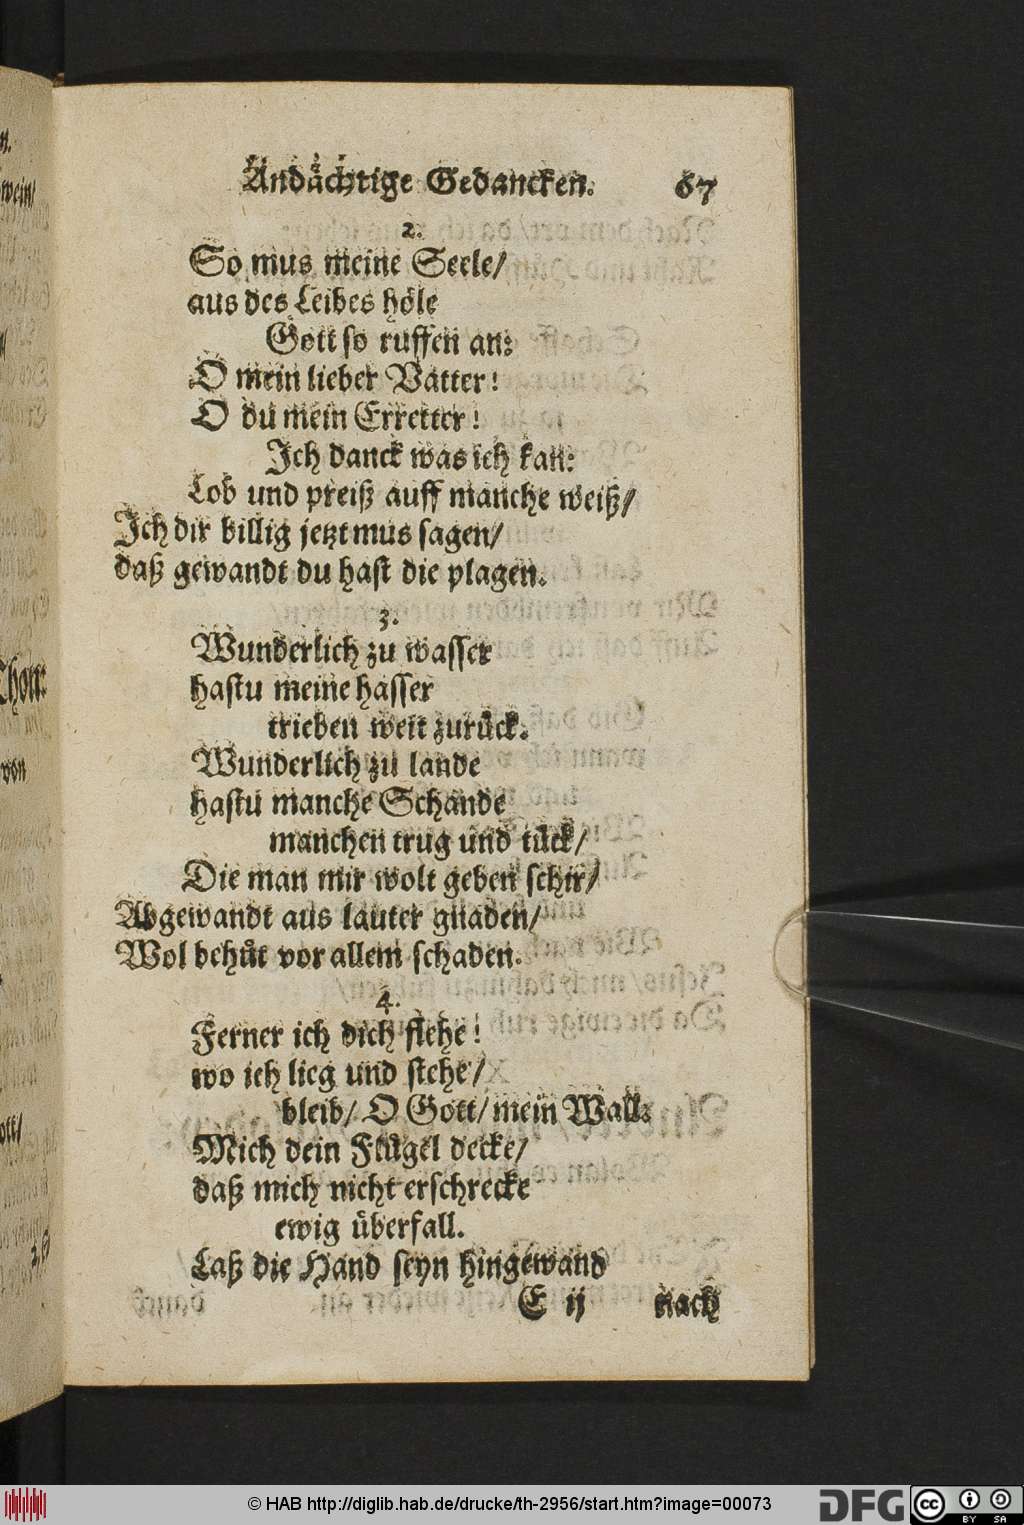 Andächtige Gedancken. 67
2.
So mus meine Seele/
aus des Leibes höle
Gott so ruffen an:
O mein lieber Vatter!
O du mein Erretter!
Ich danck was ich kan:
Lob und preiß auff manche weiß/
Ich dir billig jetzt mus sagen/
daß gewandt du hast die plagen.
3.
Wunderlich zu wasser
hastu meine hasser
trieben weit zurück.
Wunderlich zu lande
hastu manche Schande
manchen trug und tück/
Die man mir wolt geben schir/
Abgewandt aus lauter gnaden/
Wol behüt vor allem schaden.
4.
Ferner ich dich flehe!
wo ich lieg und stehe/
bleib/ O Gott/ mein Wall:
Mich dein Flügel decke/
daß mich nicht erschrecke
ewig überfall.
Laß die Hand seyn hingewand
E ij nach
© HAB http://diglib.hab.de/drucke/th-2956/start.htm?image=00073
DFG
cc BY SA